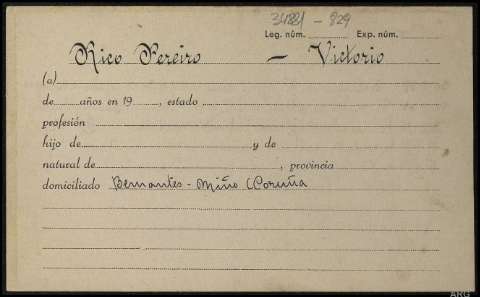 34881 - 829
Leg. núm. Exp. núm.
Rico Pereiro — Victorio
(a)
de años en 19, estado
profesión
hijo de y de
natural de, provincia
domiciliado Bemantes - Miño (Coruña
ARG